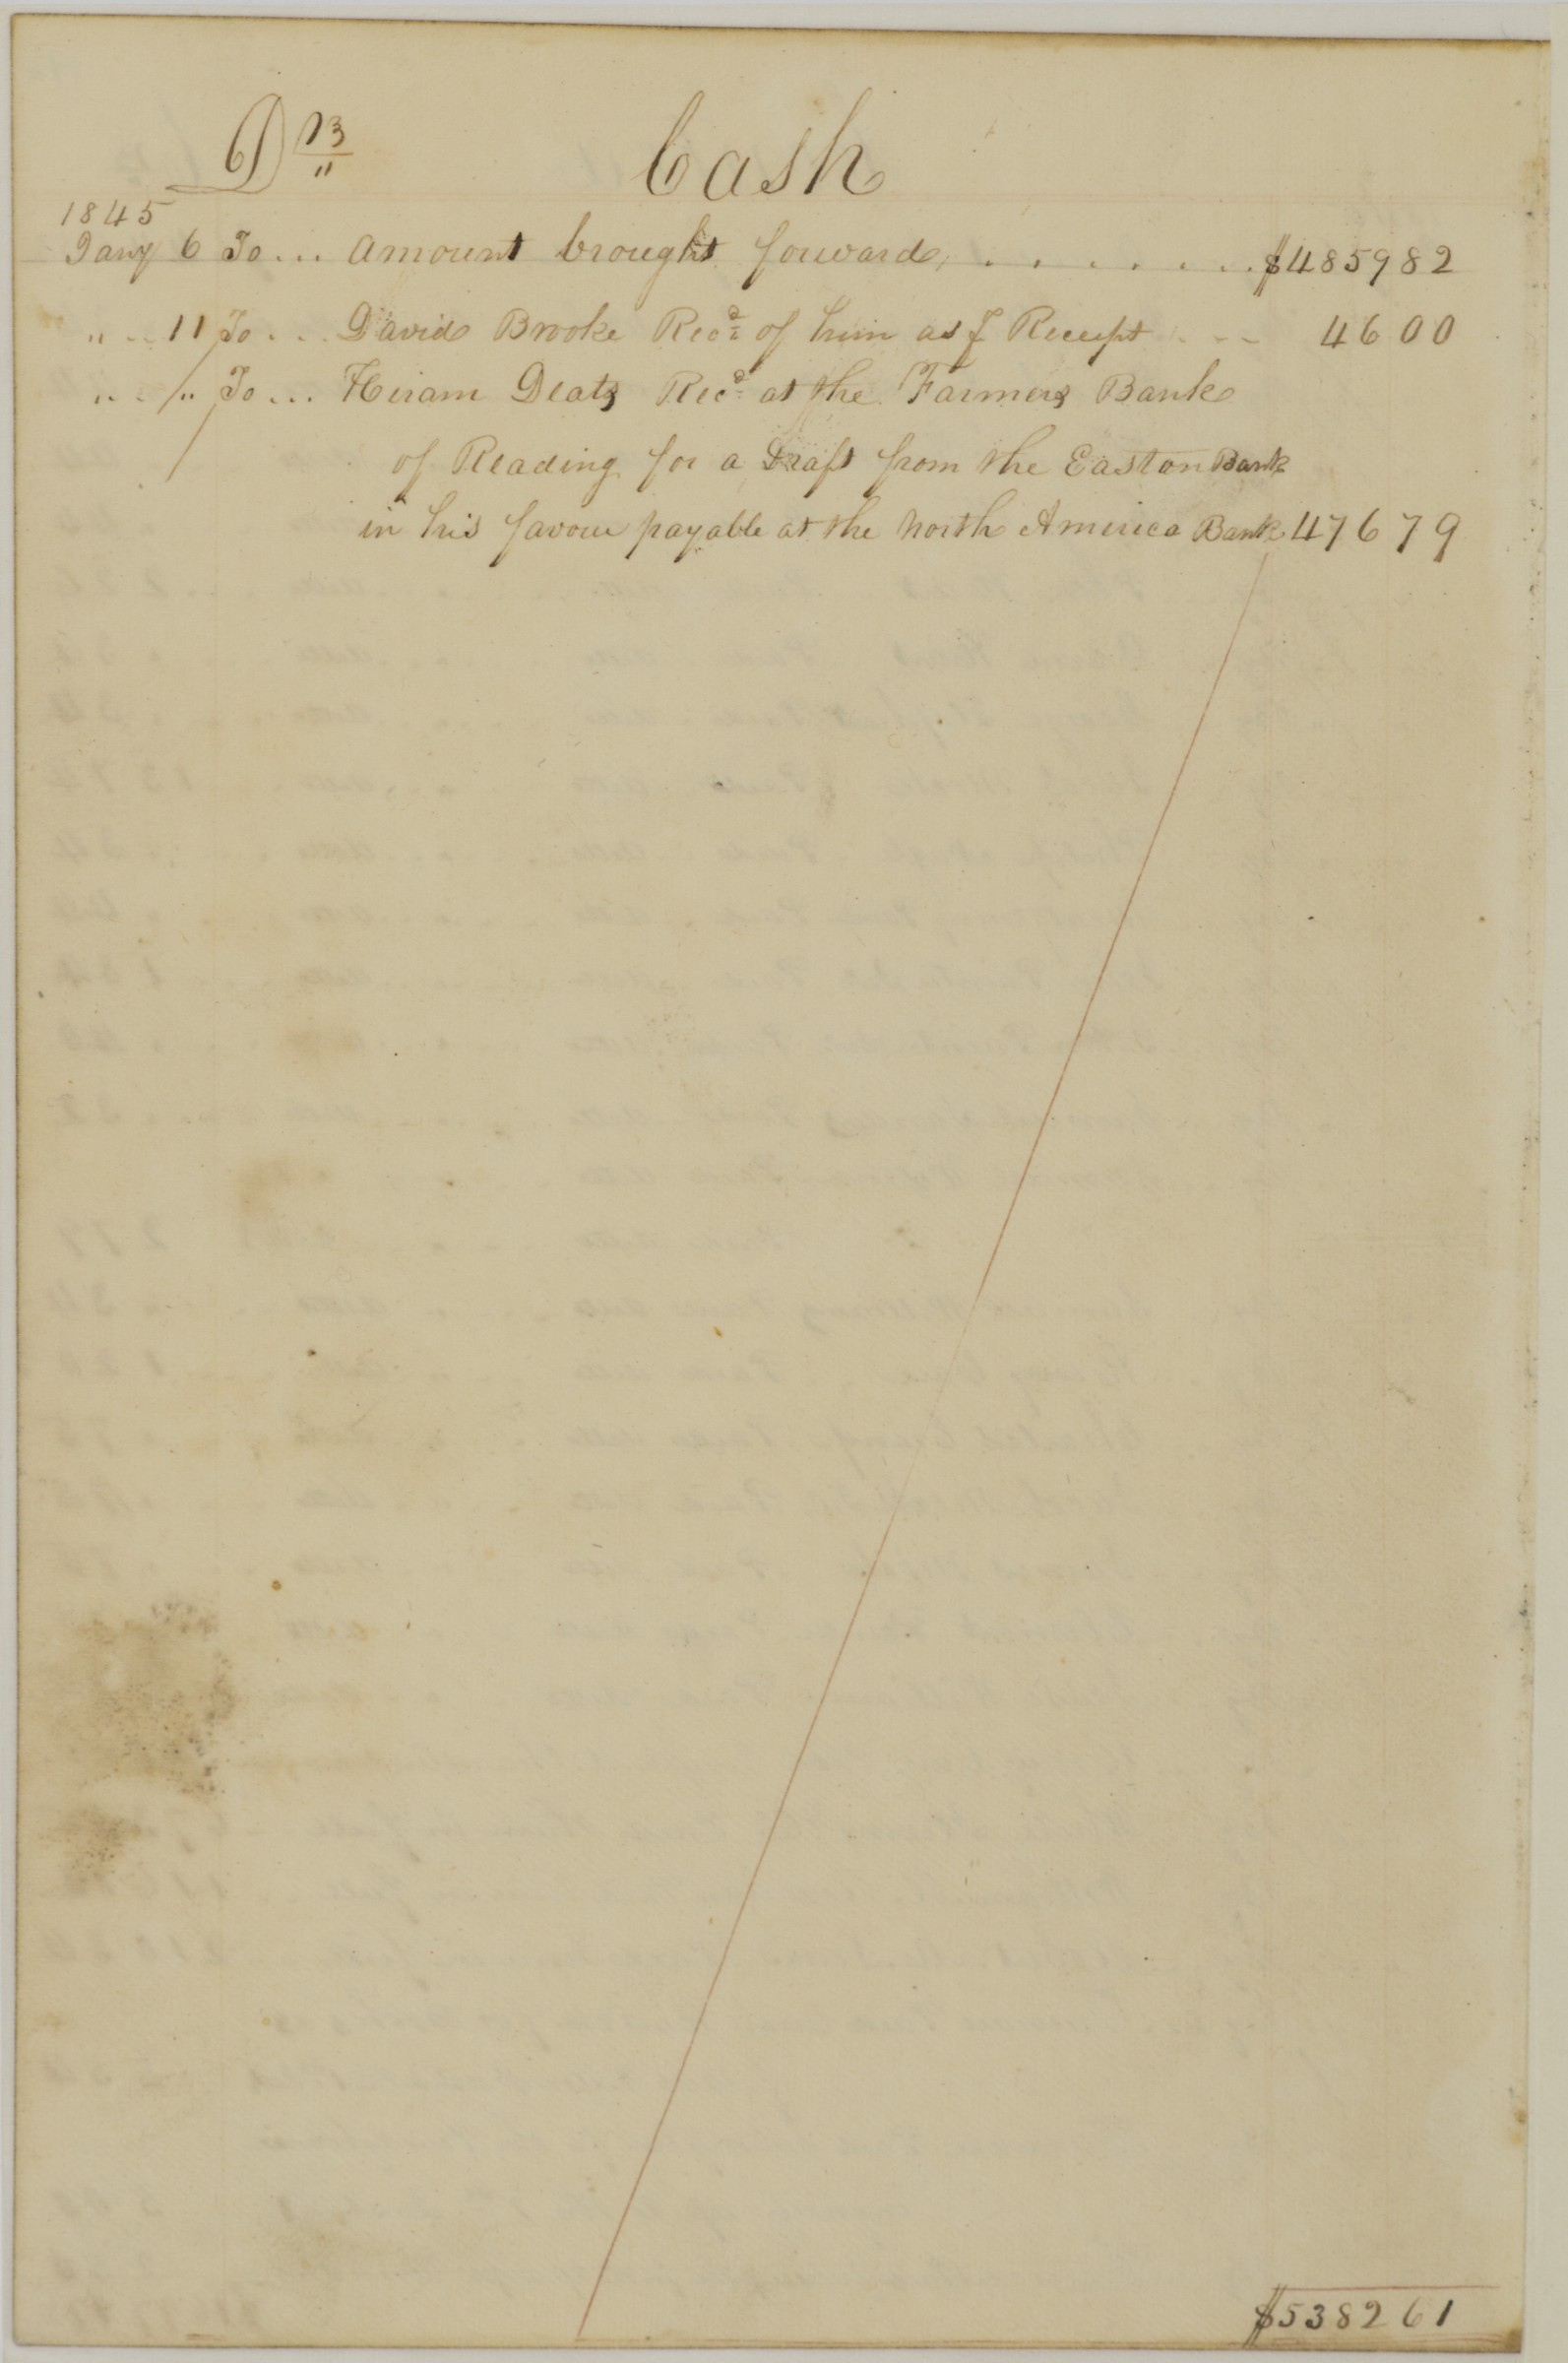 Dr Cash
1845
Jany 6 To... Amount brought forward, . . . . . . . $4859 82
" .. 11 To... David Brooke Recd of him as ⅌ Receipt . - - 46 00
" .. " To... Hiram Deats Recd at the Farmers Bank
of Reading for a Draft from the Easton Bank
in his favour payable at the North America Bank 476 79
$5382 61